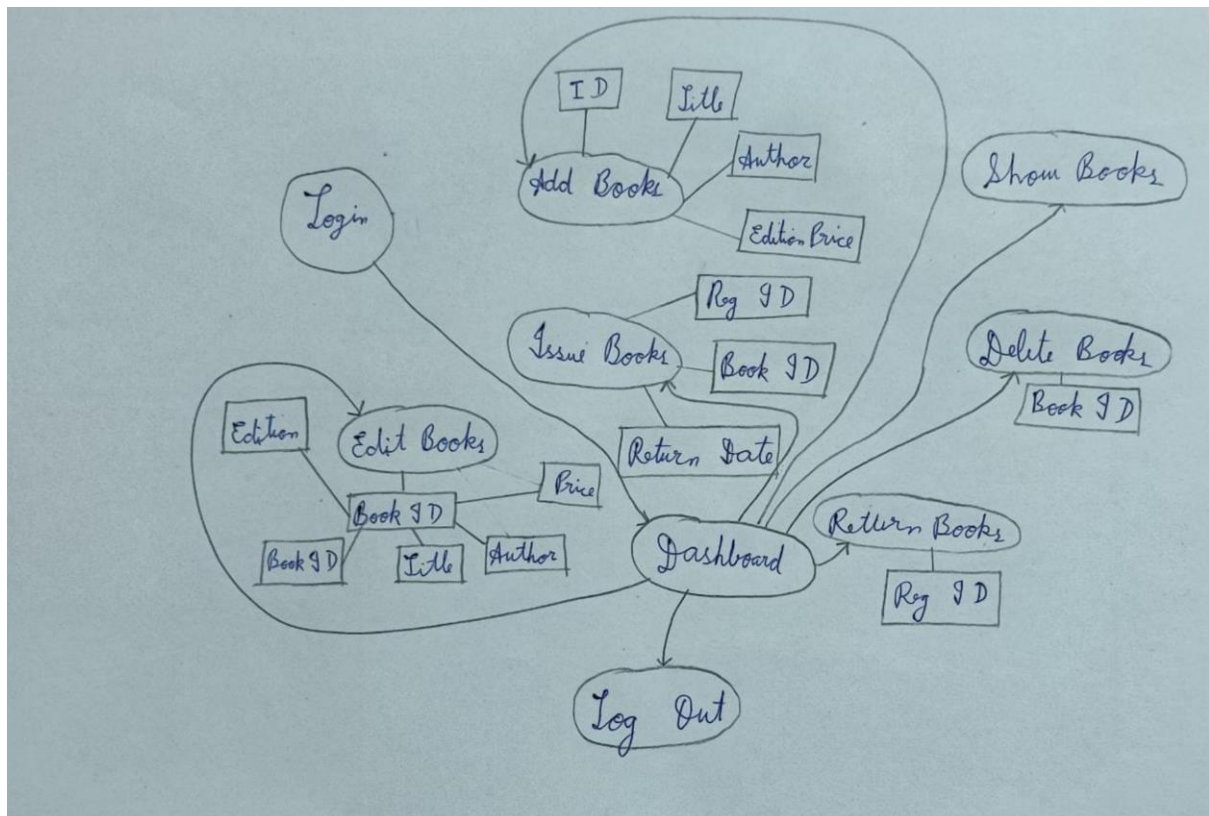 ID
Title
Author
Add Books
Edition Price
Show Books
Login
Reg ID
Issue Books
Book ID
Return Date
Delete Books
Book ID
Edition
Edit Books
Price
Book ID
Book ID
Title
Author
Dashboard
Return Books
Reg ID
Log Out